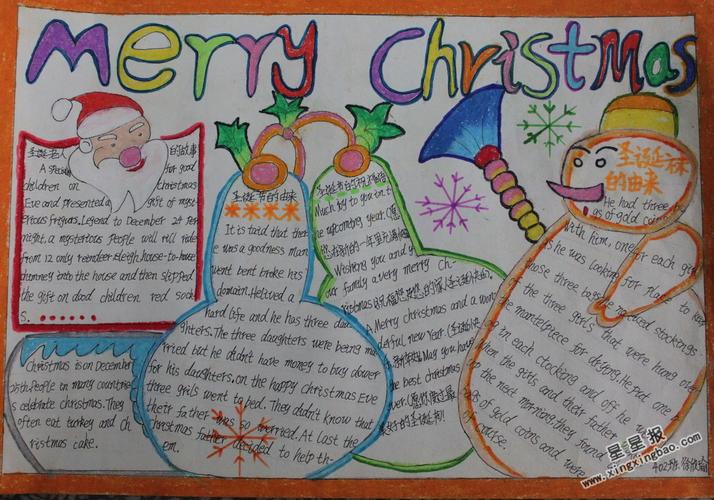 Merry Christmas
圣诞老人的故事
A for good
children on Christmas
Eve and presented a gift of myst
erious friquars. Legend to December 24 Per
night, a mysterious people will till ride
from 12 only reindeer sleigh house-to-house
chimney into the house and then slipped
the gift on dood children red sock
s.
Christmas is on December
25th. People in many countrie
s celebrate christmas. They
often eat turkey and Ch
ristmas cake.
圣诞节的由来
It is taid that there
e was a goodness man
went bent broke his
domain. He loved a
hard life and he has three dau
ghters. The three daughters were being mar
ried but he didn't have money to buy dower
for his daughters. on the happy Christmas Eve
three grils went to bed. They didn't know that
their father was so worried. At last the
christmas father decided to help th
em.
圣诞节的祝福语
Much joy to you in t
he upcoming year.
Wishing you and y
our family a very merry Ch-
ristmas
A Merry christmas and a won
derful new Year.
May you have
the best christmas
ever.
圣诞袜
的由来
He had three
gs of gold coins
with him, one for each girl
As he was looking for place to keep
those three bags he noticed stockings
of the three girls that were hung over
the manterpiece for drying. He put one
g in each clocking and off he
When the girls and their father
up the next morning, they found
ags of gold coins and were
of course.
402班
星星报
www.xingxingbao.com